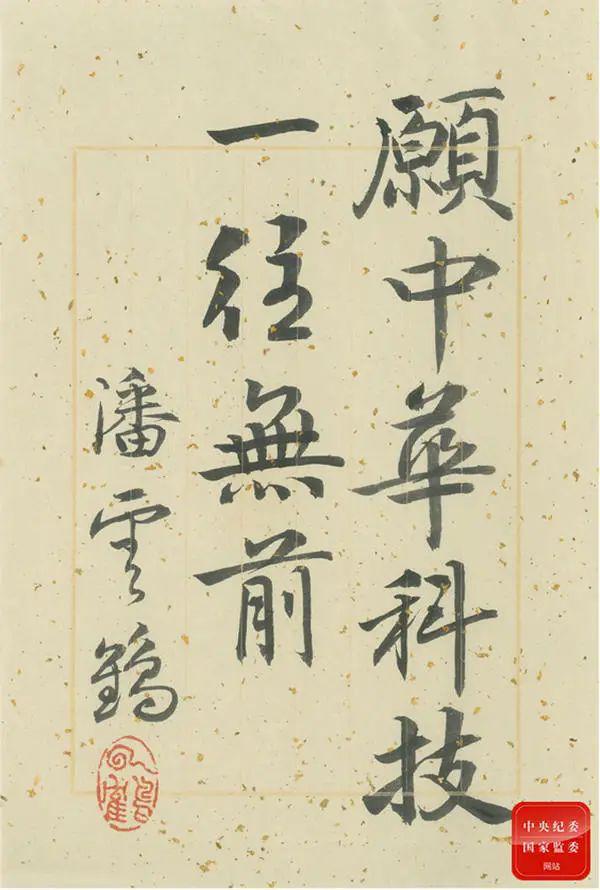 願中華科技
一往無前
潘雲鶴
中央纪委
国家监委
网站